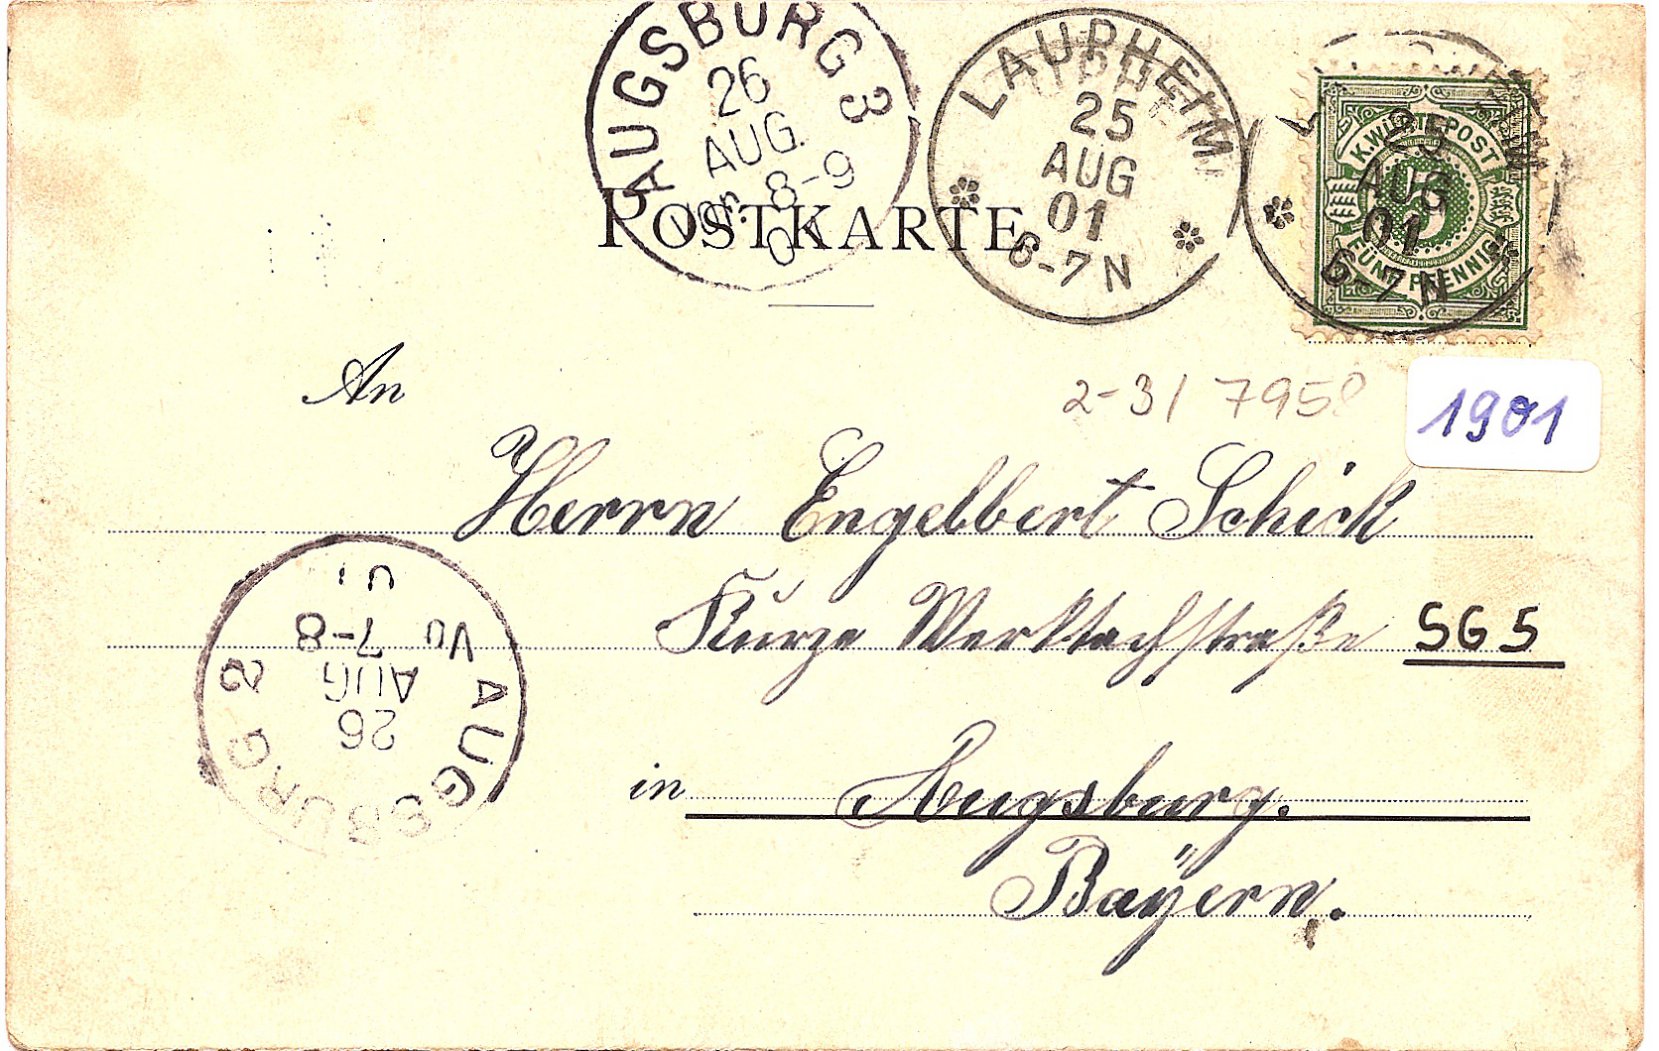 AUGSBURG 3
26
AUG.
Vor. 8-9
01
LAUPHEIM
25
AUG
01
6-7 N
K. WÜRTT. POST
5
FÜNF PFENNIG
25
AUG
01
6-7 N
POSTKARTE
An
2-3/ 7958
1901
Herrn Engelbert Schick
Kurze Werktachstraße SG 5
AUGSBURG 2
26
AUG
7-8
in Augsburg.
Bayern.